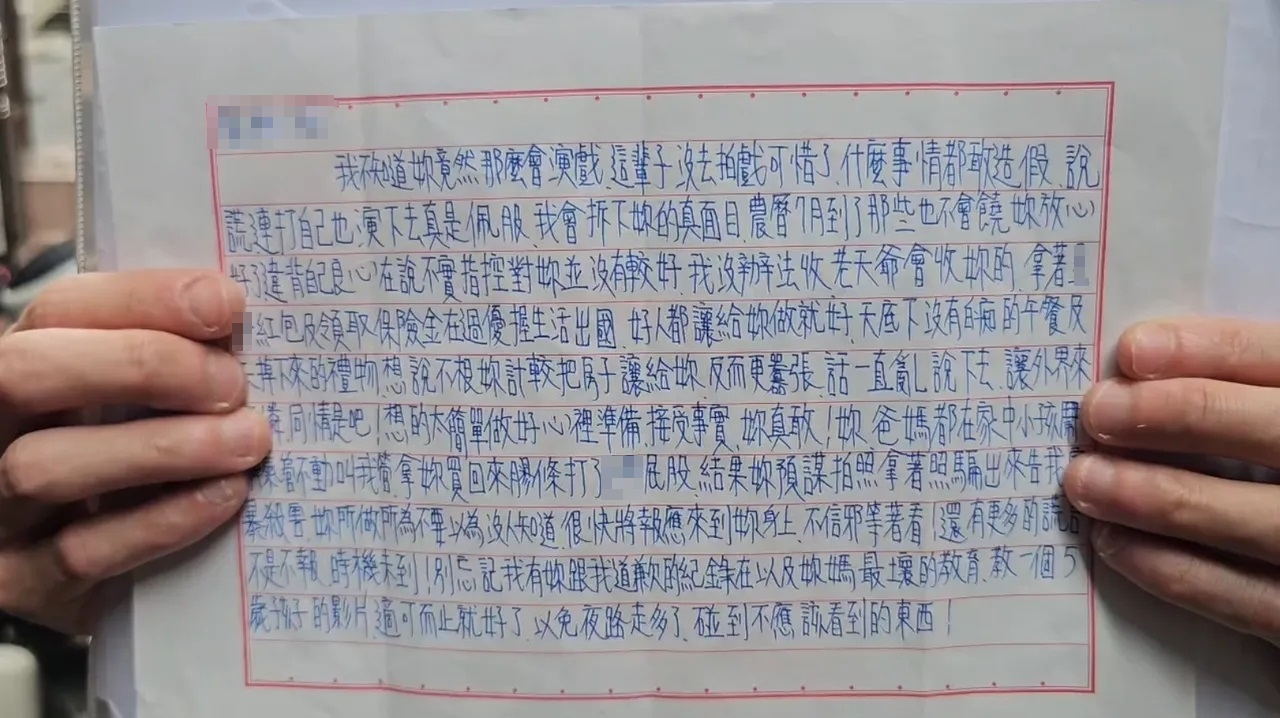 我不知道妳竟然那麼會演戲、這輩子沒去拍戲可惜了、什麼事情都敢造假、說
謊連打自己也演下去真是佩服、我會拆下妳的真面目、農曆7月到了那些也不會饒妳放心
好了違背自己良心在說不實指控對妳並沒有較好、我沒辦法收、老天爺會收妳的、拿著
紅包及領取保險金在過優握生活出國、好人都讓給妳做就好、天底下沒有白痴的午餐及
掉下來的禮物、想說不想妳計較把房子讓給妳、反而更囂張、話一直亂說下去、讓外界來
同情是吧!想的太簡單做好心裡準備、接受事實、妳真敢!妳、爸媽都在家中小孩
管不動叫我管、拿妳買回來膠條打了 屁股、結果妳預謀拍照拿著照騙出來告我
暴殺害、妳所做所為不要以為沒人知道、很快將報應來到妳身上、不信邪等著看!還有更多的謊
不是不報、時機未到!別忘記我有妳跟我道歉的紀錄在以及妳媽最壞的教育、教一個5
歲孩子的影片、適可而止就好了、以免夜路走多了、碰到不應該看到的東西!